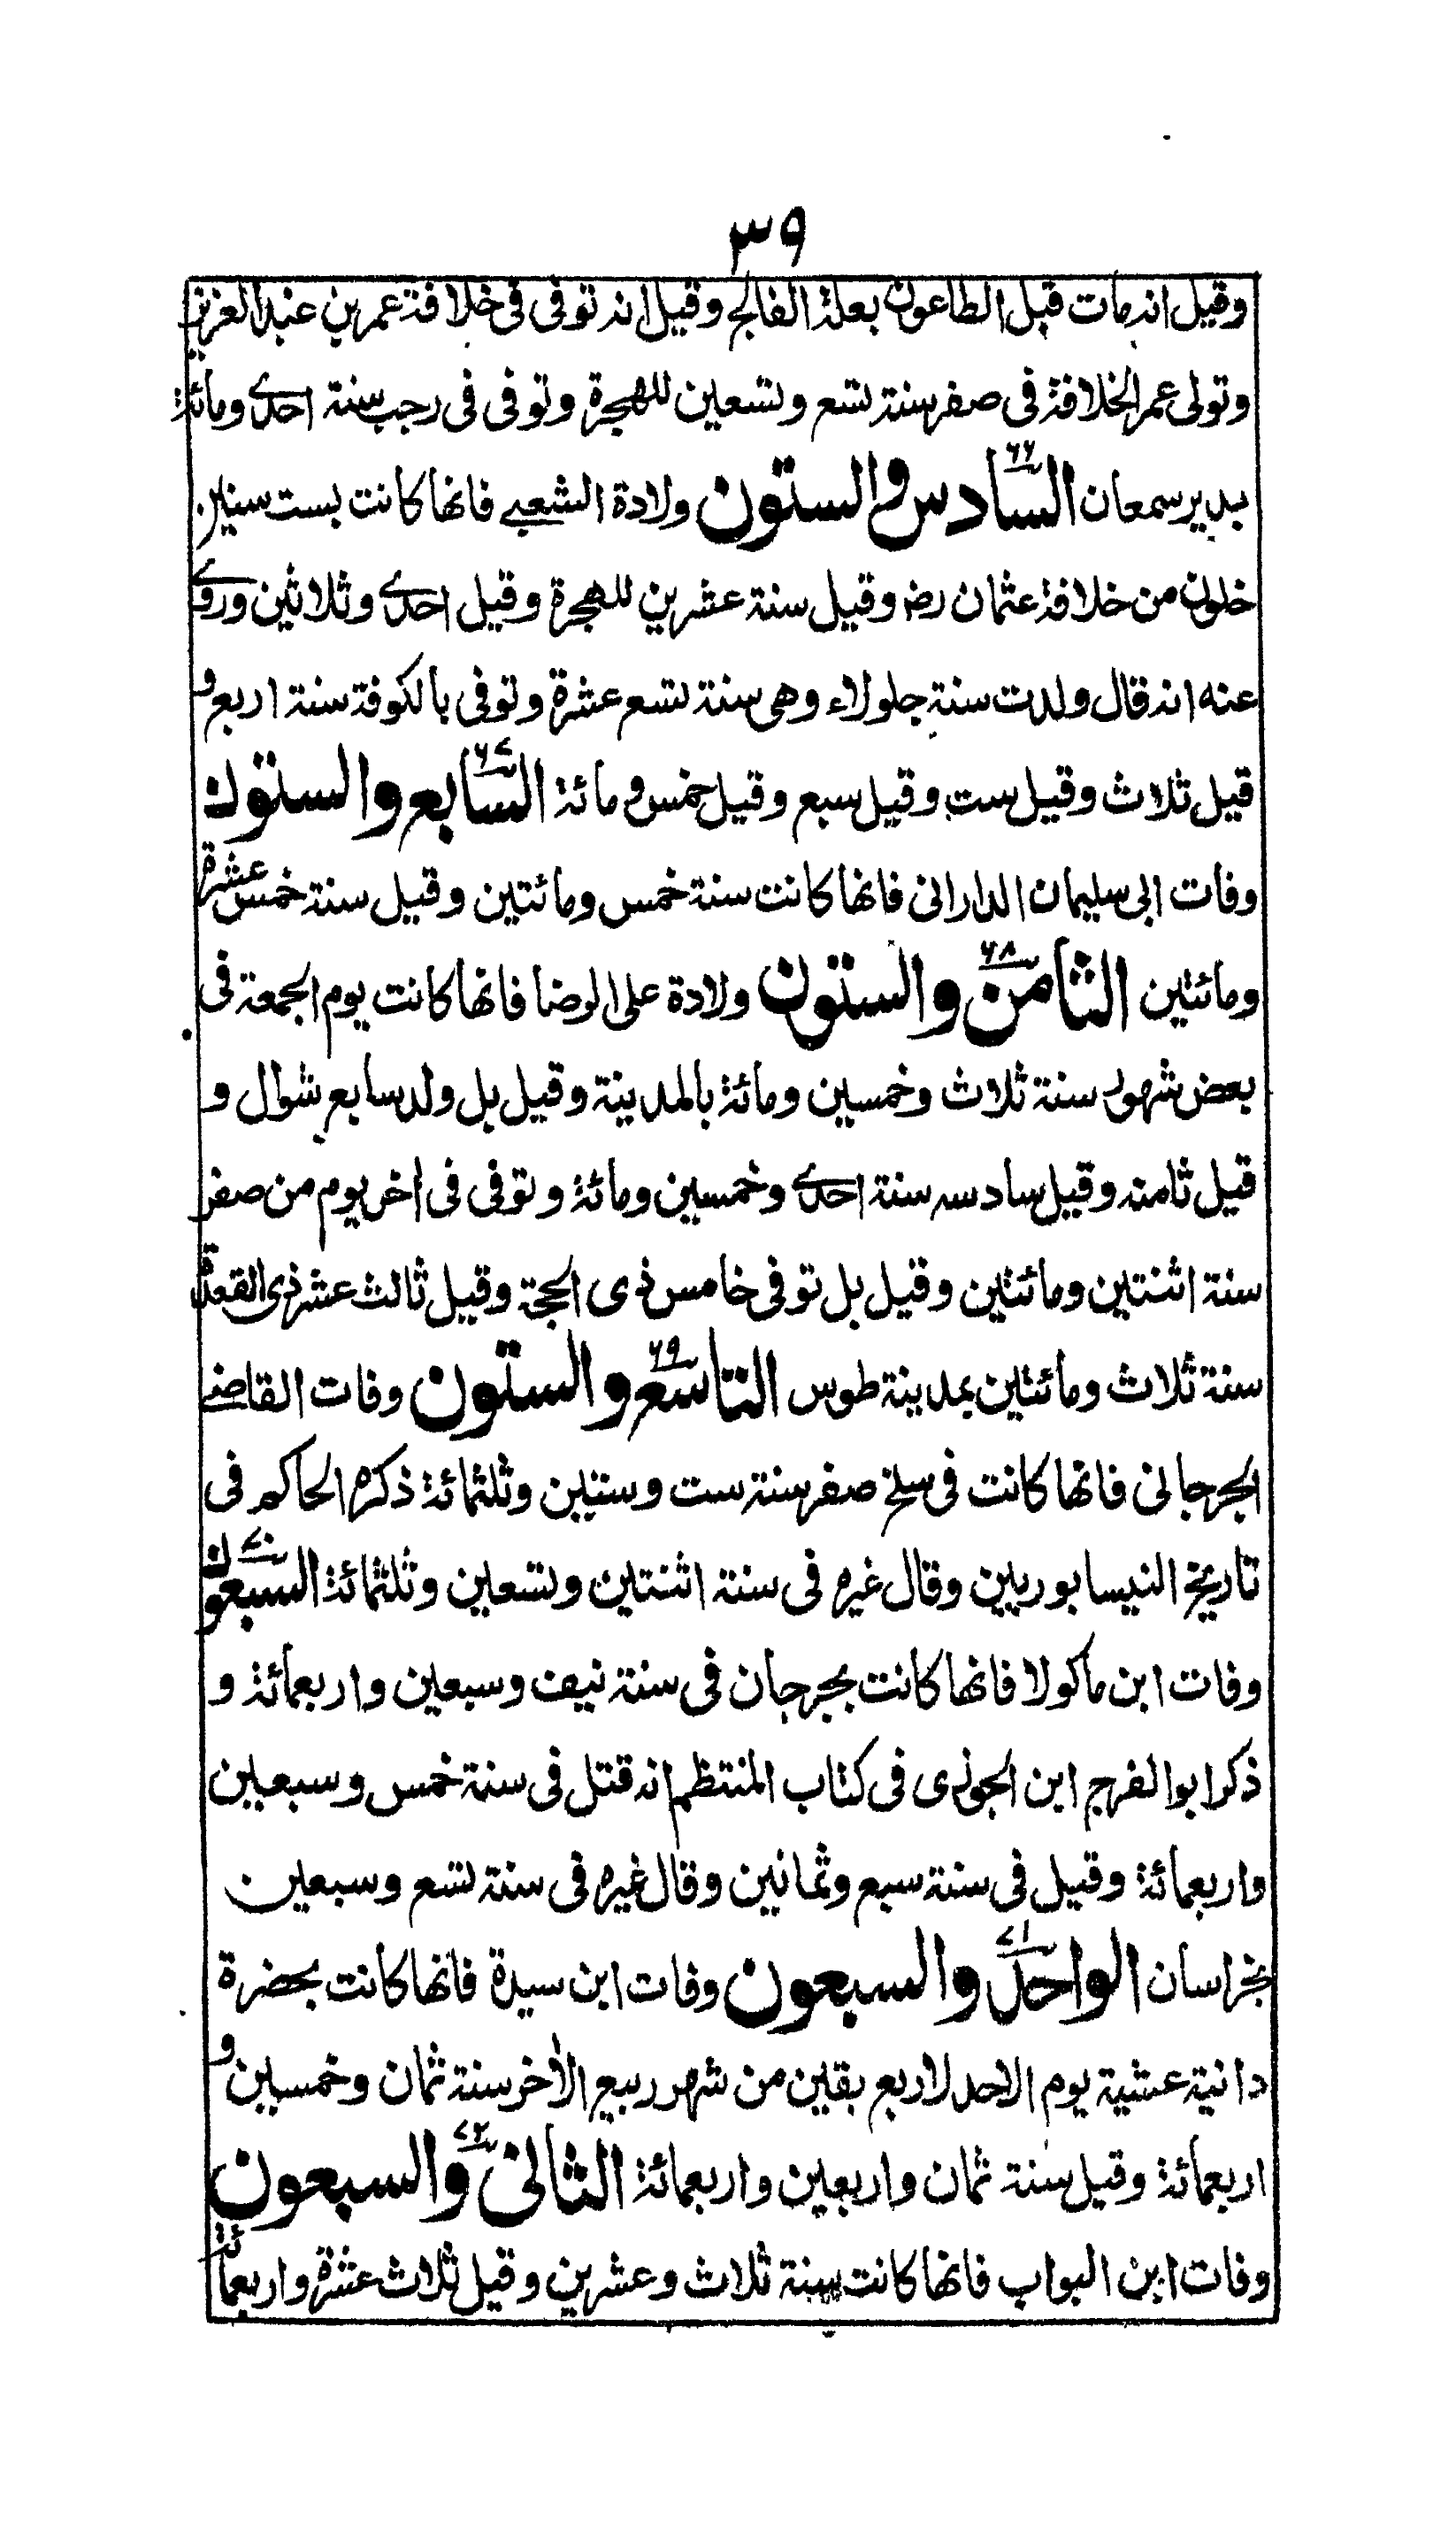 ٣٩
وقيل انه مات قبل الطاعون بعلة الفالج وقيل انه توفى فى خلافة عمر بن عبد العزيز
وتولى عمر الخلافة فى صفر سنة تسع وتسعين للهجرة وتوفى فى رجب سنة احدى ومائة
بدير سمعان السادس والستون ٦٦ ولادة الشعبے فانها كانت بست سنين
خلون من خلافة عثمان رضـ وقيل سنة عشرين للهجرة وقيل احدى وثلاثين وروى
عنه انه قال ولدت سنة جلولاء وهى سنة تسع عشرة وتوفى بالكوفة سنة اربع و
قيل ثلاث وقيل ست وقيل سبع وقيل خمس ومائة السابع والستون ٦٧
وفات ابى سليمان الدارانى فانها كانت سنة خمس ومائتين وقيل سنة خمس عشرة
ومائتين الثامن والستون ٦٨ ولادة على الرضا فانها كانت يوم الجمعة فى
بعض شهور سنة ثلاث وخمسين ومائة بالمدينة وقيل بل ولد سابع شوال و
قيل ثامنه وقيل سادسه سنة احدى وخمسين ومائة وتوفى فى اخر يوم من صفر
سنة اثنتين ومائتين وقيل بل توفى خامس ذى الحجة وقيل ثالث عشر ذى القعدة
سنة ثلاث ومائتين بمدينة طوس التاسع والستون ٦٩ وفات القاضے
الجرجانى فانها كانت فى سلخ صفر سنة ست وستين وثلثمائة ذكره الحاكم فى
تاريخ النيسابوريين وقال غيره فى سنة اثنتين وتسعين وثلثمائة السبعون ٧٠
وفات ابن ماكولا فانها كانت بجرجان فى سنة نيف وسبعين واربعمائة و
ذكر ابو الفرج ابن الجوزى فى كتاب المنتظم انه قتل فى سنة خمس وسبعين
واربعمائة وقيل فى سنة سبع وثمانين وقال غيره فى سنة تسع وسبعين
بخراسان الواحد والسبعون ٧١ وفات ابن سيدة فانها كانت بحضرة
دانية عشية يوم الاحد لاربع بقين من شهر ربيع الاٰخر سنة ثمان وخمسين و
اربعمائة وقيل سنة ثمان واربعين واربعمائة الثانى والسبعون ٧٢
وفات ابن البواب فانها كانت سنة ثلاث وعشرين وقيل ثلاث عشرة واربعمائة